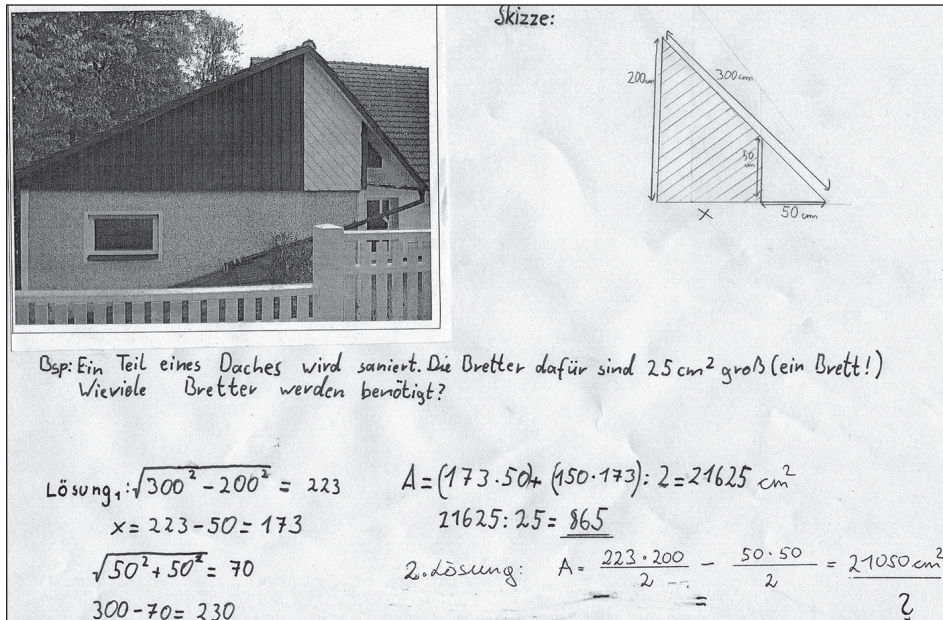 Skizze:
200cm
300cm
50
cm
X
50 cm
Bsp: Ein Teil eines Daches wird saniert. Die Bretter dafür sind 25 cm² groß (ein Brett!)
Wieviele Bretter werden benötigt?
Lösung₁: √300² - 200² = 223
x = 223 - 50 = 173
√50² + 50² = 70
300 - 70 = 230
A = (173 · 50) + (150 · 173) : 2 = 21625 cm²
21625 : 25 = 865
2. Lösung: A = 223 · 200 / 2 - 50 · 50 / 2 = 21050 cm²
=
?